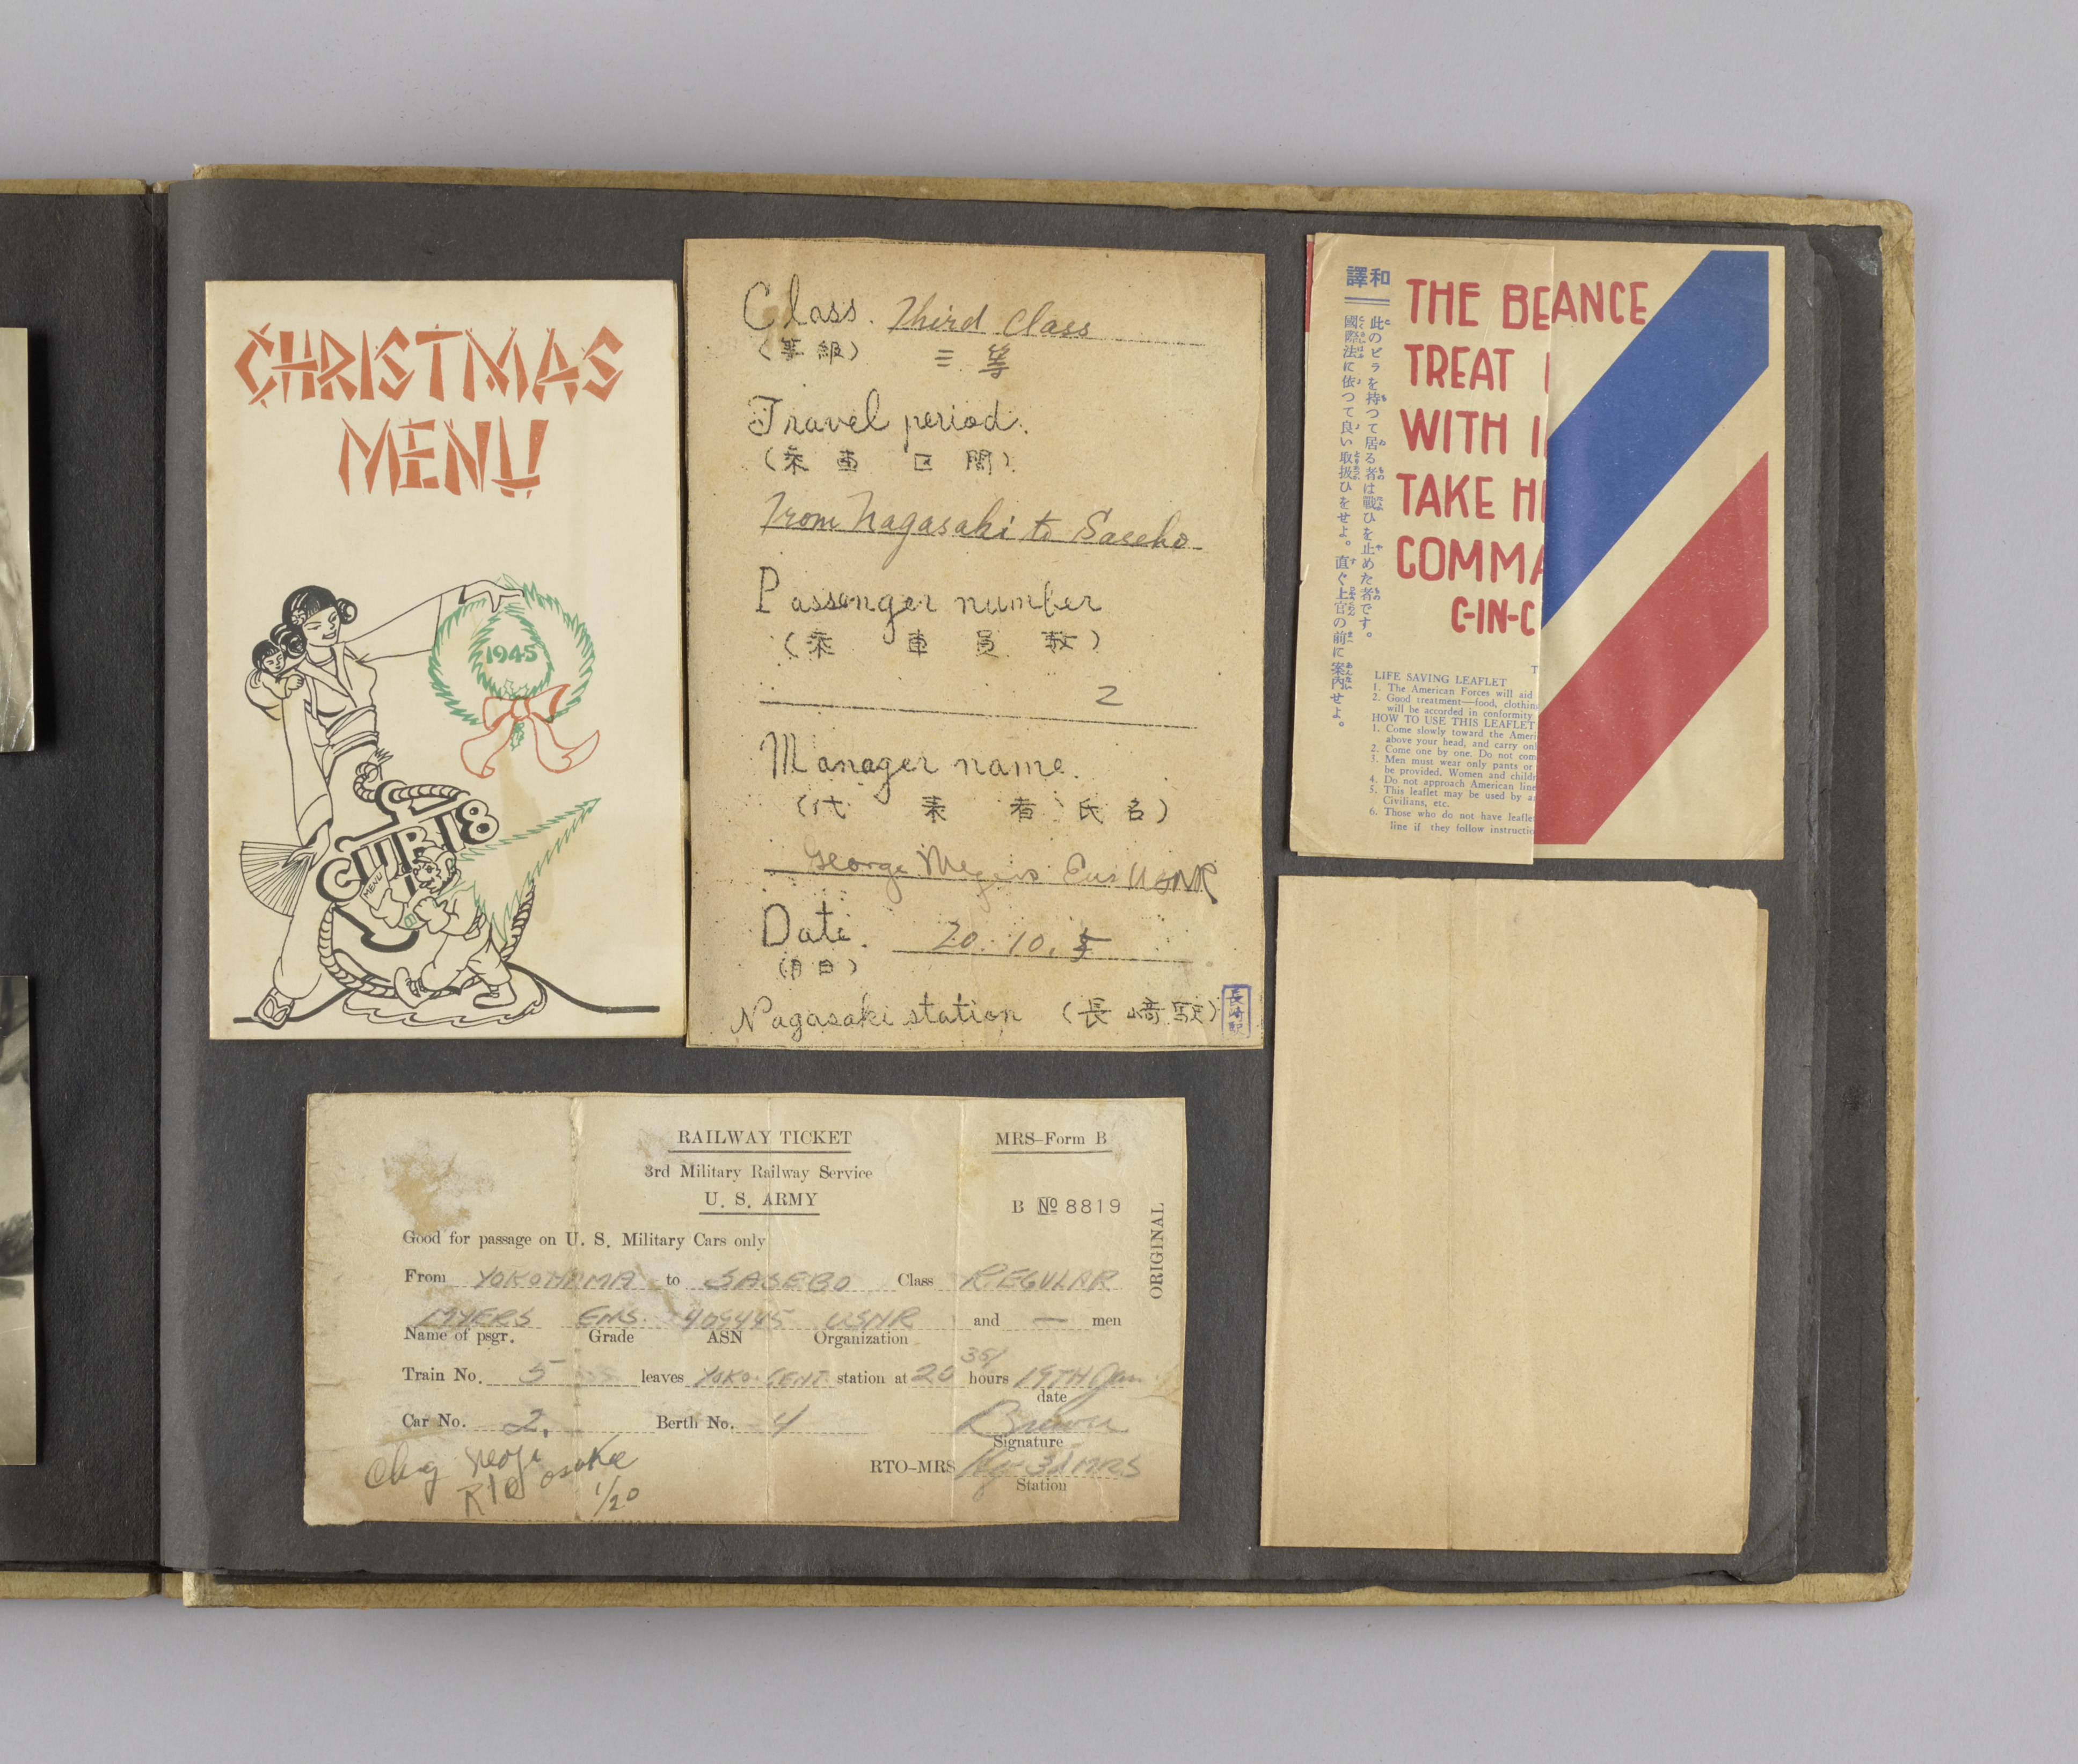 CHRISTMAS
MENU
1945
CUB 18
MENU
Class. Third Class
(等級) 三等
Travel period.
(乗車区間)
From Nagasaki to Sasebo
Passenger number
(乗車員数)
2
Manager name.
(代表者氏名)
George Meyers Ens USNR
Date. 20. 10.
(月日)
Nagasaki station (長崎駅)
長崎駅
和譯
此のビラを持つて居る者は戰ひを止めた者です。
國際法に依つて良い取扱ひをせよ。直ぐ上官の前に案内せよ。
THE BE
ANCE
TREAT
WITH
TAKE H
COMMA
C-IN-C
T
LIFE SAVING LEAFLET
1. The American Forces will aid
2. Good treatment—food, clothin
will be accorded in conformity
HOW TO USE THIS LEAFLET
1. Come slowly toward the Ameri
above your head, and carry on
2. Come one by one. Do not com
3. Men must wear only pants or
be provided. Women and childr
4. Do not approach American line
5. This leaflet may be used by a
Civilians, etc.
6. Those who do not have leafle
line if they follow instructio
RAILWAY TICKET MRS-Form B
3rd Military Railway Service
U. S. ARMY
B No 8819
ORIGINAL
Good for passage on U. S. Military Cars only
From YOKOHAMA to SASEBO Class REGULAR
MYERS ENS. 409445 USNR and — men
Name of psgr. Grade ASN Organization
Train No. 5 leaves YOKO. CENT. station at 20 35/ hours 19TH Jan.
date
Car No. 2. Berth No. 4 Brown
Signature
RTO-MRS Hq 3d MRS
Station
RTO Osaka
1/20